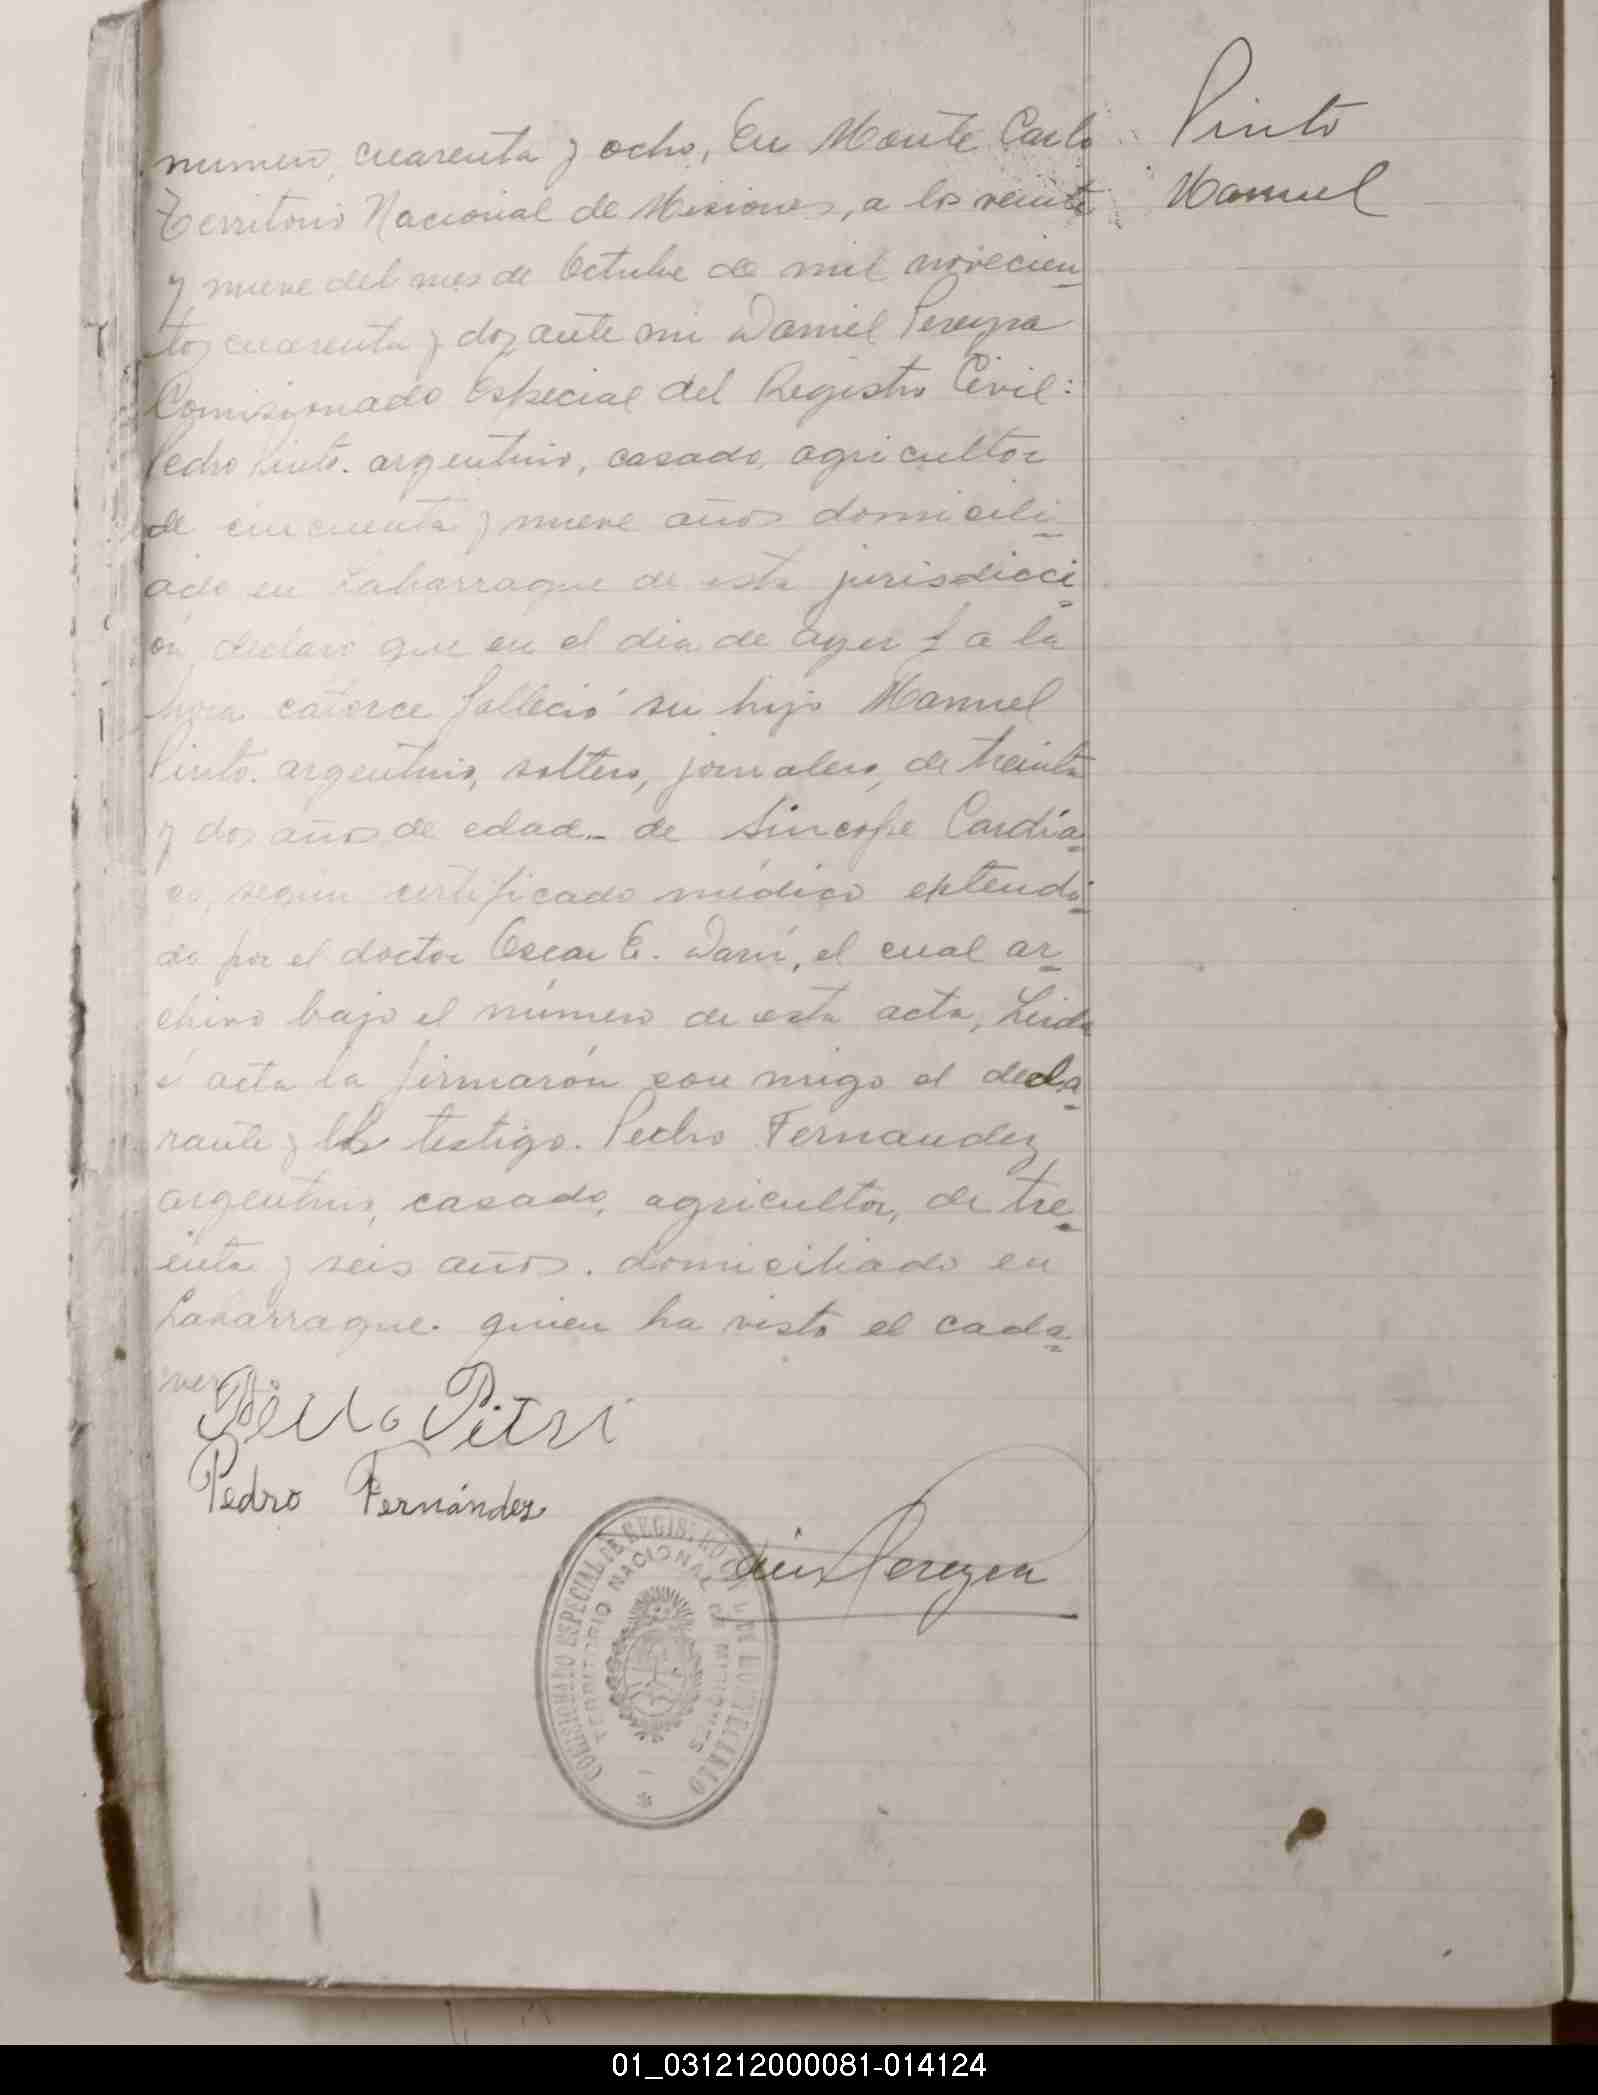 numero, cuarenta y ocho, En Monte Carlo
Territorio Nacional de Misiones, a los veinte
y nueve del mes de Octubre de mil novecien
tos cuarenta y dos ante mi Daniel Pereyra
Comisionado Especial del Registro Civil:
Pedro Pinto. argentino, casado, agricultor
de cincuenta y nueve años domicili
ado en Laharrague de esta jurisdicci
ón declaró que en el dia de ayer y a la
hora catorce falleció su hijo Manuel
Pinto. argentino, soltero, jornalero, de treinta
y dos años de edad_ de Sincope Cardía
co, según certificado médico extendi
do por el doctor Oscar E. Darú, el cual ar
chivo bajo el número de esta acta, Leida
el acta la firmarón con migo el decla
rante y el testigo. Pedro Fernandez
argentino, casado, agricultor, de tre
inta y seis años. domiciliado en
Laharrague. quien ha visto el cada
ver.
Pinto
Manuel
Pedro
Pedro Fernández
Pereyra
COMISIONADO ESPECIAL DE REGISTRO CIVIL DE MONTECARLO
TERRITORIO NACIONAL DE MISIONES
01_031212000081-014124